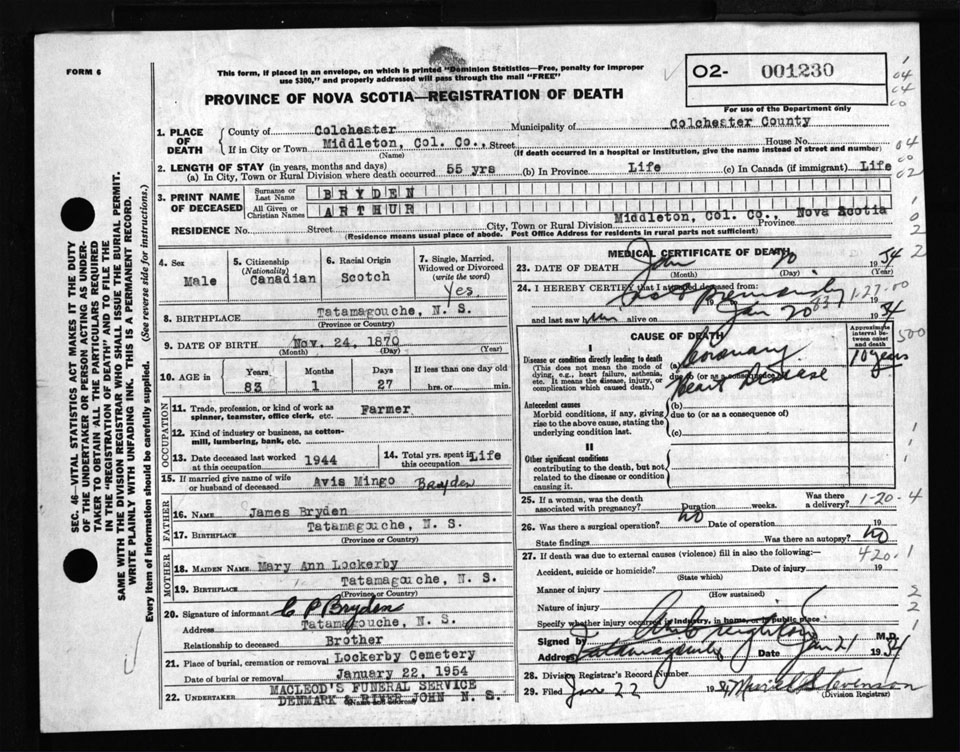 FORM 6
This form, if placed in an envelope, on which is printed "Dominion Statistics—Free, penalty for improper
use $300," and properly addressed will pass through the mail "FREE"
PROVINCE OF NOVA SCOTIA—REGISTRATION OF DEATH
O2- 001230
For use of the Department only
1. PLACE OF DEATH
County of Colchester Municipality of Colchester County
If in City or Town Middleton, Col. Co., Street House No.
(Name) (If death occurred in a hospital or institution, give the name instead of street and number)
2. LENGTH OF STAY (in years, months and days)
(a) In City, Town or Rural Division where death occurred 55 yrs (b) In Province Life (c) In Canada (if immigrant) Life
3. PRINT NAME OF DECEASED
Surname or Last Name BRYDEN
All Given or Christian Names ARTHUR
RESIDENCE No. Street City, Town or Rural Division Middleton, Col. Co., Province Nova Scotia
(Residence means usual place of abode. Post Office Address for residents in rural parts not sufficient)
4. Sex
Male
5. Citizenship
(Nationality)
Canadian
6. Racial Origin
Scotch
7. Single, Married,
Widowed or Divorced
(write the word)
Yes.
8. BIRTHPLACE Tatamagouche, N. S.
(Province or Country)
9. DATE OF BIRTH Nov. 24, 1870
(Month) (Day) (Year)
10. AGE in
Years Months Days If less than one day old
83 1 27 hrs. or min.
OCCUPATION
11. Trade, profession, or kind of work as
spinner, teamster, office clerk, etc. Farmer
12. Kind of industry or business, as cotton-
mill, lumbering, bank, etc.
13. Date deceased last worked
at this occupation 1944
14. Total yrs. spent in
this occupation Life
15. If married give name of wife
or husband of deceased Avis Mingo Bryden
FATHER
16. NAME James Bryden
17. BIRTHPLACE Tatamagouche, N. S.
(Province or Country)
MOTHER
18. MAIDEN NAME Mary Ann Lockerby
19. BIRTHPLACE Tatamagouche, N. S.
(Province or Country)
20. Signature of informant C P Bryden
Address Tatamagouche, N. S.
Relationship to deceased Brother
21. Place of burial, cremation or removal Lockerby Cemetery
Date of burial or removal January 22, 1954
22. UNDERTAKER MACLEOD'S FUNERAL SERVICE
DENMARK & RIVER JOHN N. S.
(Name and address)
MEDICAL CERTIFICATE OF DEATH
23. DATE OF DEATH Jan 20 1954
(Month) (Day) (Year)
24. I HEREBY CERTIFY that I attended deceased from:
19
and last saw him alive on Jan 20 1954
83 1-27-00
CAUSE OF DEATH
Approximate interval between onset and death
I
Disease or condition directly leading to death
(This does not mean the mode of
dying, e.g., heart failure, asthenia,
etc. It means the disease, injury, or
complication which caused death.)
(a) Coronary
due to (or as a consequence of)
Heart Disease
10 years
500
Antecedent causes
Morbid conditions, if any, giving
rise to the above cause, stating the
underlying condition last.
(b)
due to (or as a consequence of)
(c)
II
Other significant conditions
contributing to the death, but not
related to the disease or condition
causing it.
25. If a woman, was the death
associated with pregnancy? Duration weeks. Was there
a delivery?
1-20-4
26. Was there a surgical operation? no Date of operation 19
State findings Was there an autopsy? no
27. If death was due to external causes (violence) fill in also the following:
420.1
Accident, suicide or homicide? Date of injury 19
(State which)
Manner of injury
(How sustained)
Nature of injury
Specify whether injury occurred in industry, in home, or in public place
Signed by M.D.
Address Tatamagouche Date Jan 21 1954
28. Division Registrar's Record Number
29. Filed Jan 22 1954 Muriel Stevenson
(Division Registrar)
SEC. 46—VITAL STATISTICS ACT MAKES IT THE DUTY
OF THE UNDERTAKER OR PERSON ACTING AS UNDER-
TAKER TO OBTAIN ALL THE PARTICULARS REQUIRED
IN THE "REGISTRATION OF DEATH" AND TO FILE THE
SAME WITH THE DIVISION REGISTRAR WHO SHALL ISSUE THE BURIAL PERMIT.
WRITE PLAINLY WITH UNFADING INK. THIS IS A PERMANENT RECORD.
Every item of information should be carefully supplied. (See reverse side for instructions.)